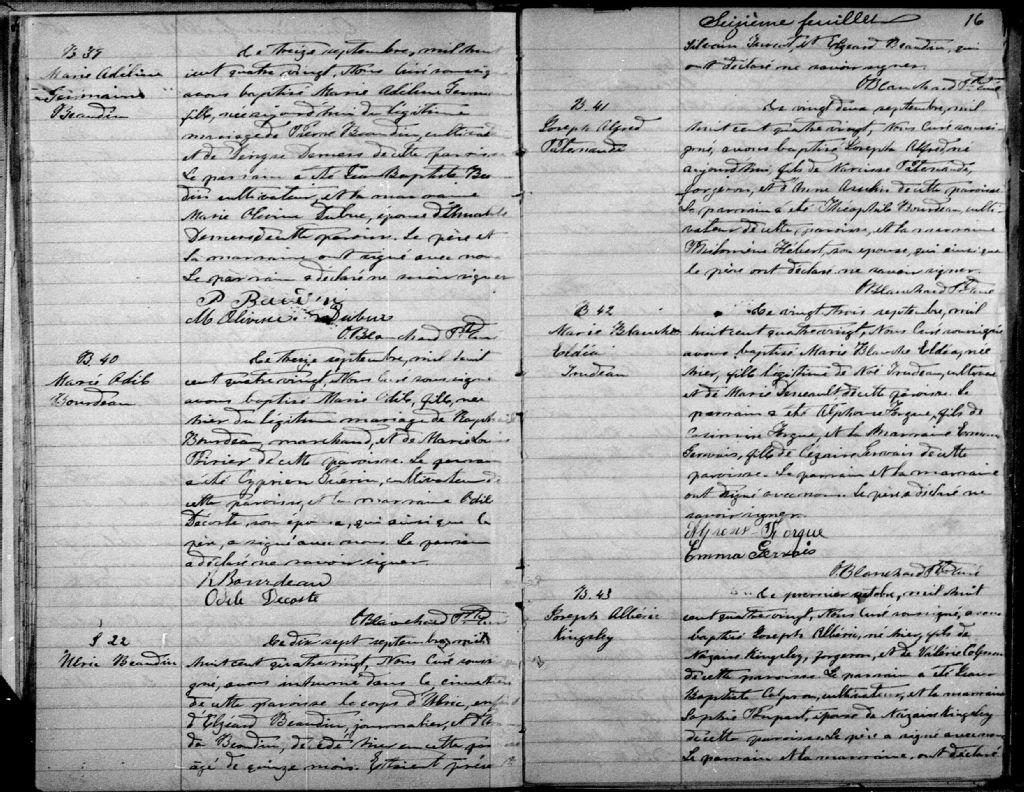 B 39
Marie Adéline
Germaine
Beaudin
Le treize septembre, mil huit
cent quatre vingt, Nous Curé soussigné
avons baptisé Marie Adeline
fille, née aujourd'hui du légitime
mariage de Pierre Beaudin, cultivateur
et de Demers de cette paroisse
Le parrain a été Jean Baptiste
cultivateur, et la marraine
Marie Olivine Dubuc, épouse
Demers de cette paroisse. Le père et
la marraine ont signé avec nous
Le parrain a déclaré ne savoir signer
P Beaudin
M Olivine Dubuc
O Blanchard Ptre Curé
B. 40
Marie Odile
Bourdeau
Le treize septembre, mil huit
cent quatre vingt, Nous Curé soussigné
avons baptisé Marie Odile, fille, née
hier du légitime mariage de
Bourdeau, marchand, et de Marie Louise
Poirier de cette paroisse. Le parrain
a été Cyprien Guérin, cultivateur de
cette paroisse, et la marraine Odile
Decoste, son épouse, qui ainsi que le
père, a signé avec nous. Le parrain
a déclaré ne savoir signer.
Bourdeau
Odile Decoste
O Blanchard Ptre Curé
S 22
Ulric Beaudin
Le dix sept septembre, mil
huit cent quatre vingt, Nous Curé soussi
gné, avons inhumé dans le cimetière
de cette paroisse le corps d'Ulric, enfant
d'Elzéard Beaudin, journalier, et
Beaudin, décédé hier en cette paroisse
âgé de quinze mois. Etaient présents
Seizième feuillet 16
et Elzéard Beaudin, qui
ont déclaré ne savoir signer.
O Blanchard Ptre Curé
B. 41
Joseph Alfred
Patenaude
Le vingt deux septembre, mil
huit cent quatre vingt, Nous Curé soussi
gné, avons baptisé Joseph Alfred, né
aujourd'hui, fils de Narcisse Patenaude,
forgeron, et d'Anne de cette paroisse
Le parrain a été Théophile Bourdeau, culti
vateur de cette paroisse, et la marraine
Philomène Hébert, son épouse, qui ainsi que
le père ont déclaré ne savoir signer.
O Blanchard Ptre Curé
B. 42
Marie Blanche
Eldéa
Trudeau
Le vingt trois septembre, mil
huit cent quatre vingt, Nous Curé soussigné
avons baptisé Marie Blanche Eldéa, née
hier, fille légitime de Noé Trudeau, cultivateur
et de Marie de cette paroisse. Le
parrain a été Alphonse Forgue, fils de
Casimir Forgue, et la Marraine Emma
Gervais, fille de Gervais de cette
paroisse. Le parrain et la marraine
ont signé avec nous. Le père a déclaré ne
savoir signer.
Alphons Forgue
Emma Gervais
O Blanchard Ptre Curé
B. 43
Joseph Albéric
Kingsley
Le premier octobre, mil huit
cent quatre vingt, Nous Curé soussigné, avons
baptisé Joseph Albéric, né hier, fils de
Nazaire Kingsley, forgeron, et de Valérie
de cette paroisse. Le parrain a été Jean
Baptiste cultivateur, et la marraine
Sophie Dupart, épouse de Nazaire Kingsley
de cette paroisse. Le père a signé avec nous
Le parrain et la marraine, ont déclaré